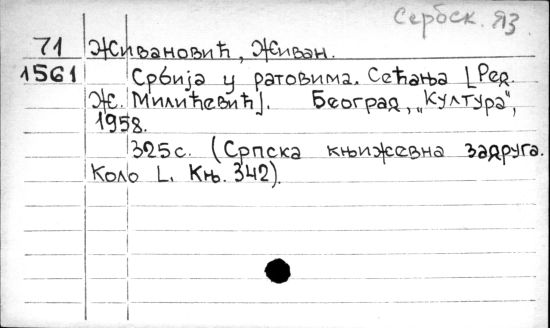 Сербск. яз.
71 Живановић, Живан.
1561 Србија у ратовима. Сећања [Ред.
Ж. Милићевић]. Београд, „Култура“,
1958.
325 с. (Српска књижевна задруга.
Коло L. Књ. 342).